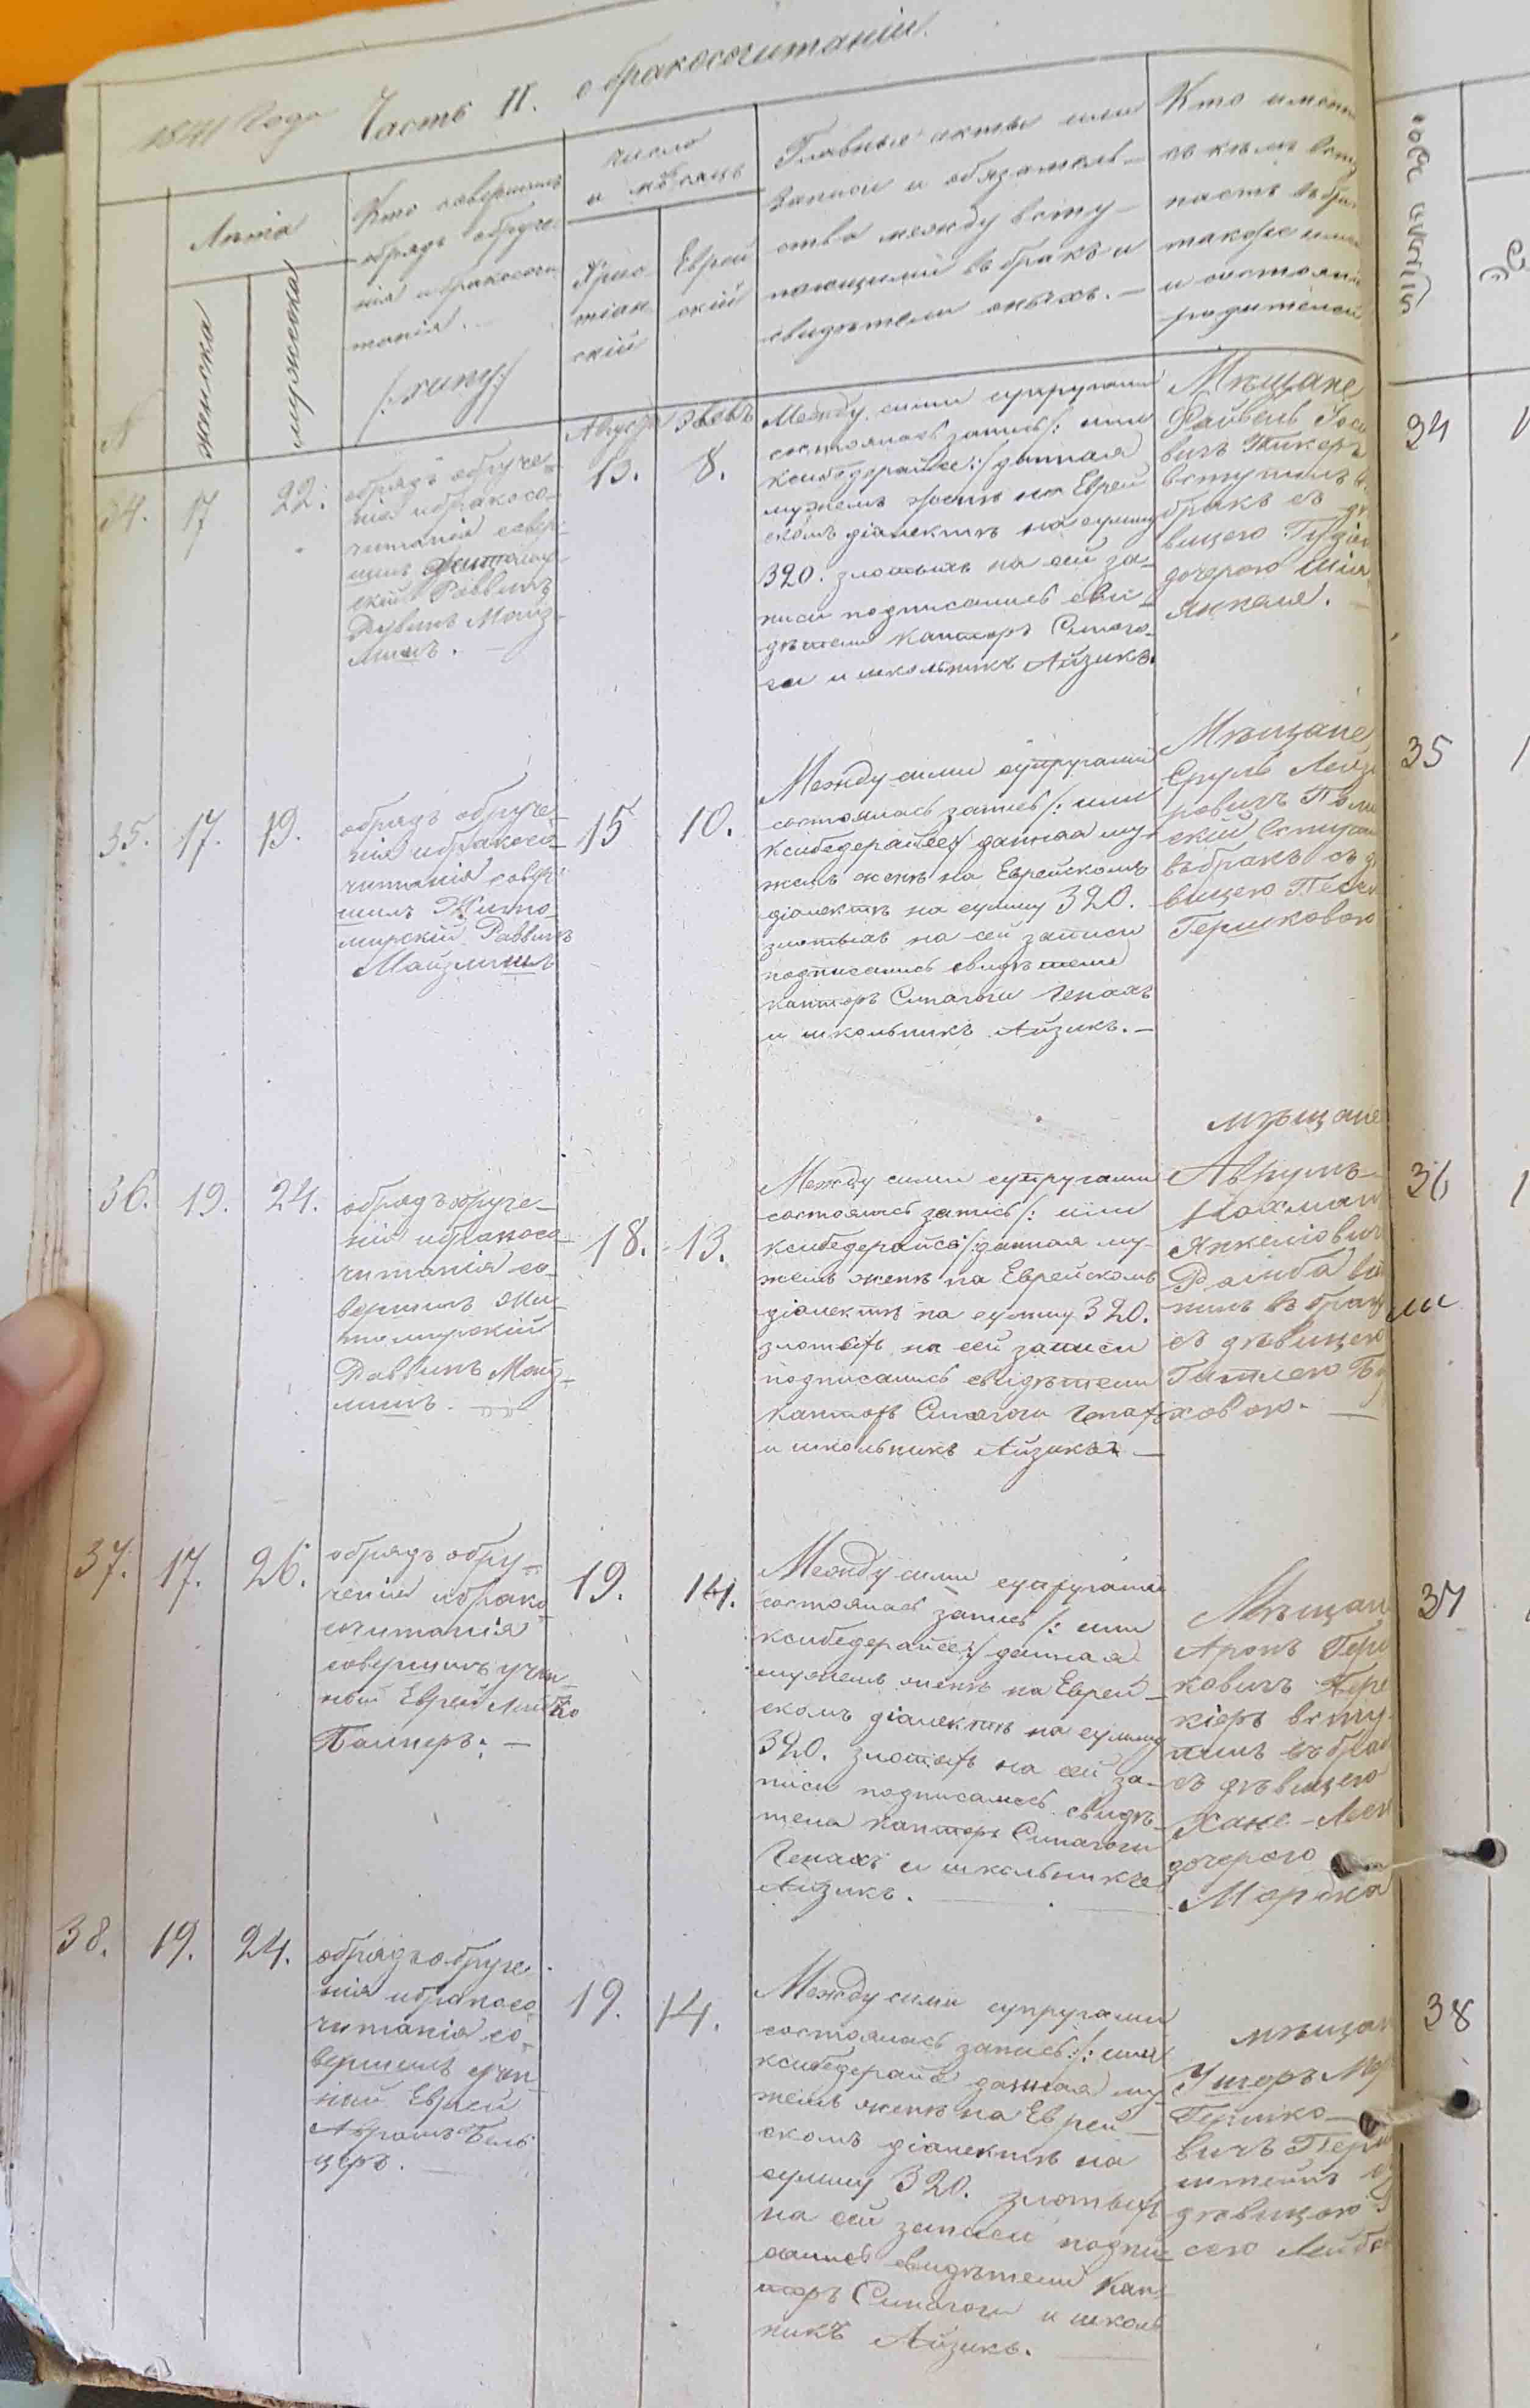 1841 Года Часть II. о бракосочитании.
№
Лѣта
женска
мужеска
Кто совершилъ
обрядъ обруче
нія и бракосочи
танія.
/:хупу:/
число
и мѣсяцъ
Хрис
тіан
скій
Еврей
скій
Главные акты или
записи и обязатель-
ства между всту-
пающими въ бракъ и
свидѣтели оныхъ. -
Кто именно
съ кемъ всту
паетъ въ бра
также име
и состояніе
родителей
34.
17
22.
обрядъ обруче-
нія и бракосо-
читанія совер-
шилъ Житомир
скій Раввинъ
Рувинъ Майз-
лишъ. -
Августа
13.
8.
Между сими супругами
состоялась запись /: или
ксибедерайсе:/ данная
мужемъ женѣ на Еврей
скомъ діалектѣ на сумму
320. злотыхъ на сей за-
писи подписались сви-
дѣтели Канторъ Синаго-
ги и школьникъ Айзикъ.
Мѣщане
Файвель Іосе
вичъ
вступилъ
бракъ съ дѣ
вицею
дочерою
Янкеля.
24
35.
17.
19.
обрядъ обруче-
нія и бракосо-
читанія совер-
шилъ Жито-
мирскій Раввинъ
Майзлишъ
15
10.
Между сими супругами
состоялась запись /: или
ксибедерайсе:/ данная му-
жемъ женѣ на Еврейскомъ
діалектѣ на сумму 320.
злотыхъ на сей записи
подписались свидѣтели
канторъ Синагоги Генахъ
и школьникъ Айзикъ. -
Мѣщане
Сруль Лейзе
ровичъ Поли
скій вступил
въ бракъ съ дѣ
вицею Песею
Гершковою
35
36.
19.
24.
обрядъ обруче-
нія и бракосо-
читанія со-
вершилъ Жи-
томирскій
Раввинъ Майз-
лишъ. -
18.
13.
Между сими супругами
состоялась запись /: или
ксибедерайсе:/ данная му-
жемъ женѣ на Еврейскомъ
діалектѣ на сумму 320.
злотыхъ на сей записи
подписались свидѣтели
канторъ Синагоги Генахъ
и школьникъ Айзикъ -
мѣщане
Аврумъ-
Нахман
Янкеліович
пилъ въ бракъ
съ дѣвицею
Гитлею
ховою. -
36
37.
17.
26.
обрядъ обру-
ченія и брако
сочитанія
совершилъ учен
ный Еврей Лейбко
19.
14.
Между сими супругами
состоялась запись /: или
ксибедерайсе:/ данная
мужемъ женѣ на Еврей-
скомъ діалектѣ на сумму
320. злотыхъ на сей за-
писи подписались свидѣ-
тели канторъ Синагоги
Генахъ и школьникъ
Айзикъ. -
Мѣщан
Аронъ Герш
ковичъ
кіеръ всту-
пилъ въ брак
съ дѣвицею
Хане-Лею
дочерою
Мордка
37
38.
19.
24.
обрядъ обруче
нія и бракосо
читанія со-
вершилъ учен-
ный Еврей
Аврамъ Бель
церъ.
19.
14.
Между сими супругами
состоялась запись /: или
ксибедерайсе данная му-
жемъ женѣ на Еврей-
скомъ діалектѣ на
сумму 320. злотыхъ
на сей записи подпи-
сались свидѣтели Кан-
торъ Синагоги и школь
никъ Айзикъ.
мѣщан
Ушеръ
Гершко-
вичъ Перль
штейнъ
дѣвицею
сею Лейбо
38